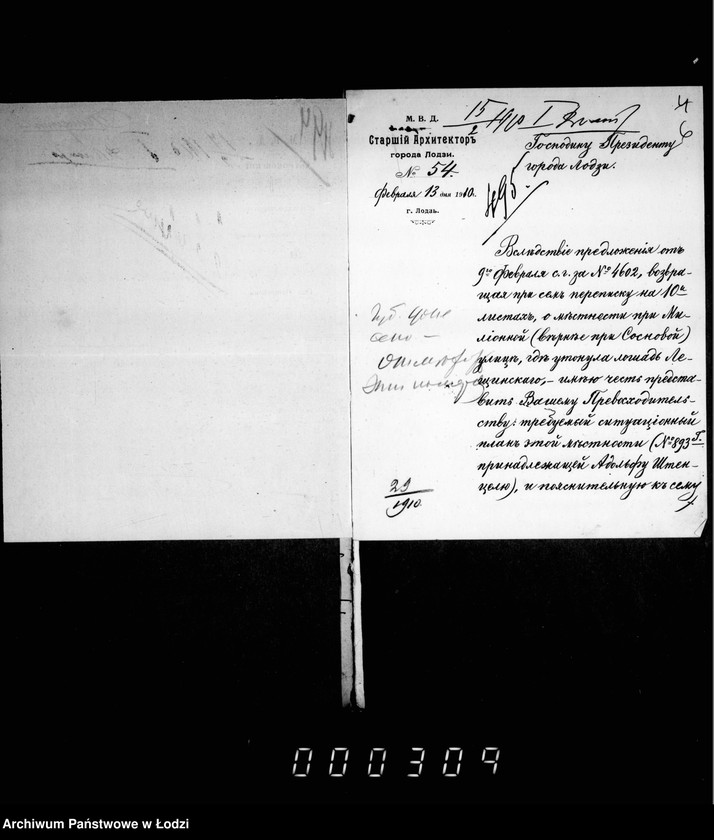 М. В. Д.
Старшій Архитекторъ
города Лодзи.
№ 54.
Февраля 13 дня 1910.
г. Лодзь.
15/2 1910 I
4
6
Господину Президенту
города Лодзи.
495
Вслѣдствіе предложенія отъ
9го Февраля с.г. за № 4602, возвра-
щая при семъ переписку на 10и
листахъ, о мѣстности при Ми-
ліонной (вѣрнѣе при Сосновой)
улицѣ, гдѣ утонула лошадь Ле-
щинскаго, – имѣю честь предста-
вить Вашему Превосходитель-
ству: требуемый ситуаціонный
планъ этой мѣстности (№ 893 Г.
принадлежащей Адольфу Штен-
целю), и пояснительную къ сему
29
1910
000309
Archiwum Państwowe w Łodzi